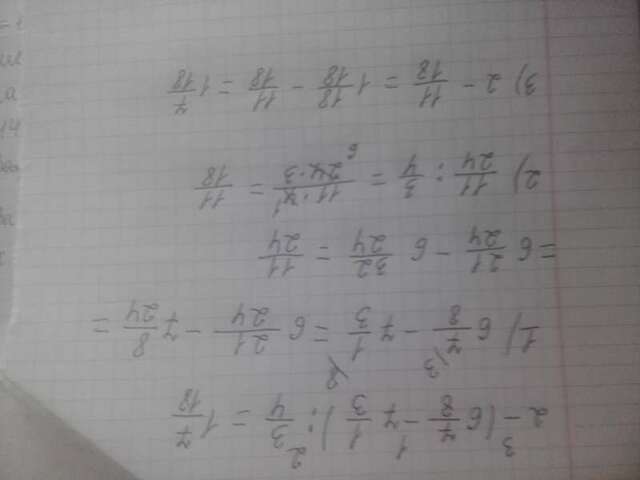 2 - (6 7/8 - 7 1/3) : 3/4 = 1 7/18
1) 6 7/8 - 7 1/3 = 6 21/24 - 7 8/24 =
= 6 21/24 - 6 32/24 = 11/24
2) 11/24 : 3/4 = 11·4/24·3 = 11/18
3) 2 - 11/18 = 1 18/18 - 11/18 = 1 7/18